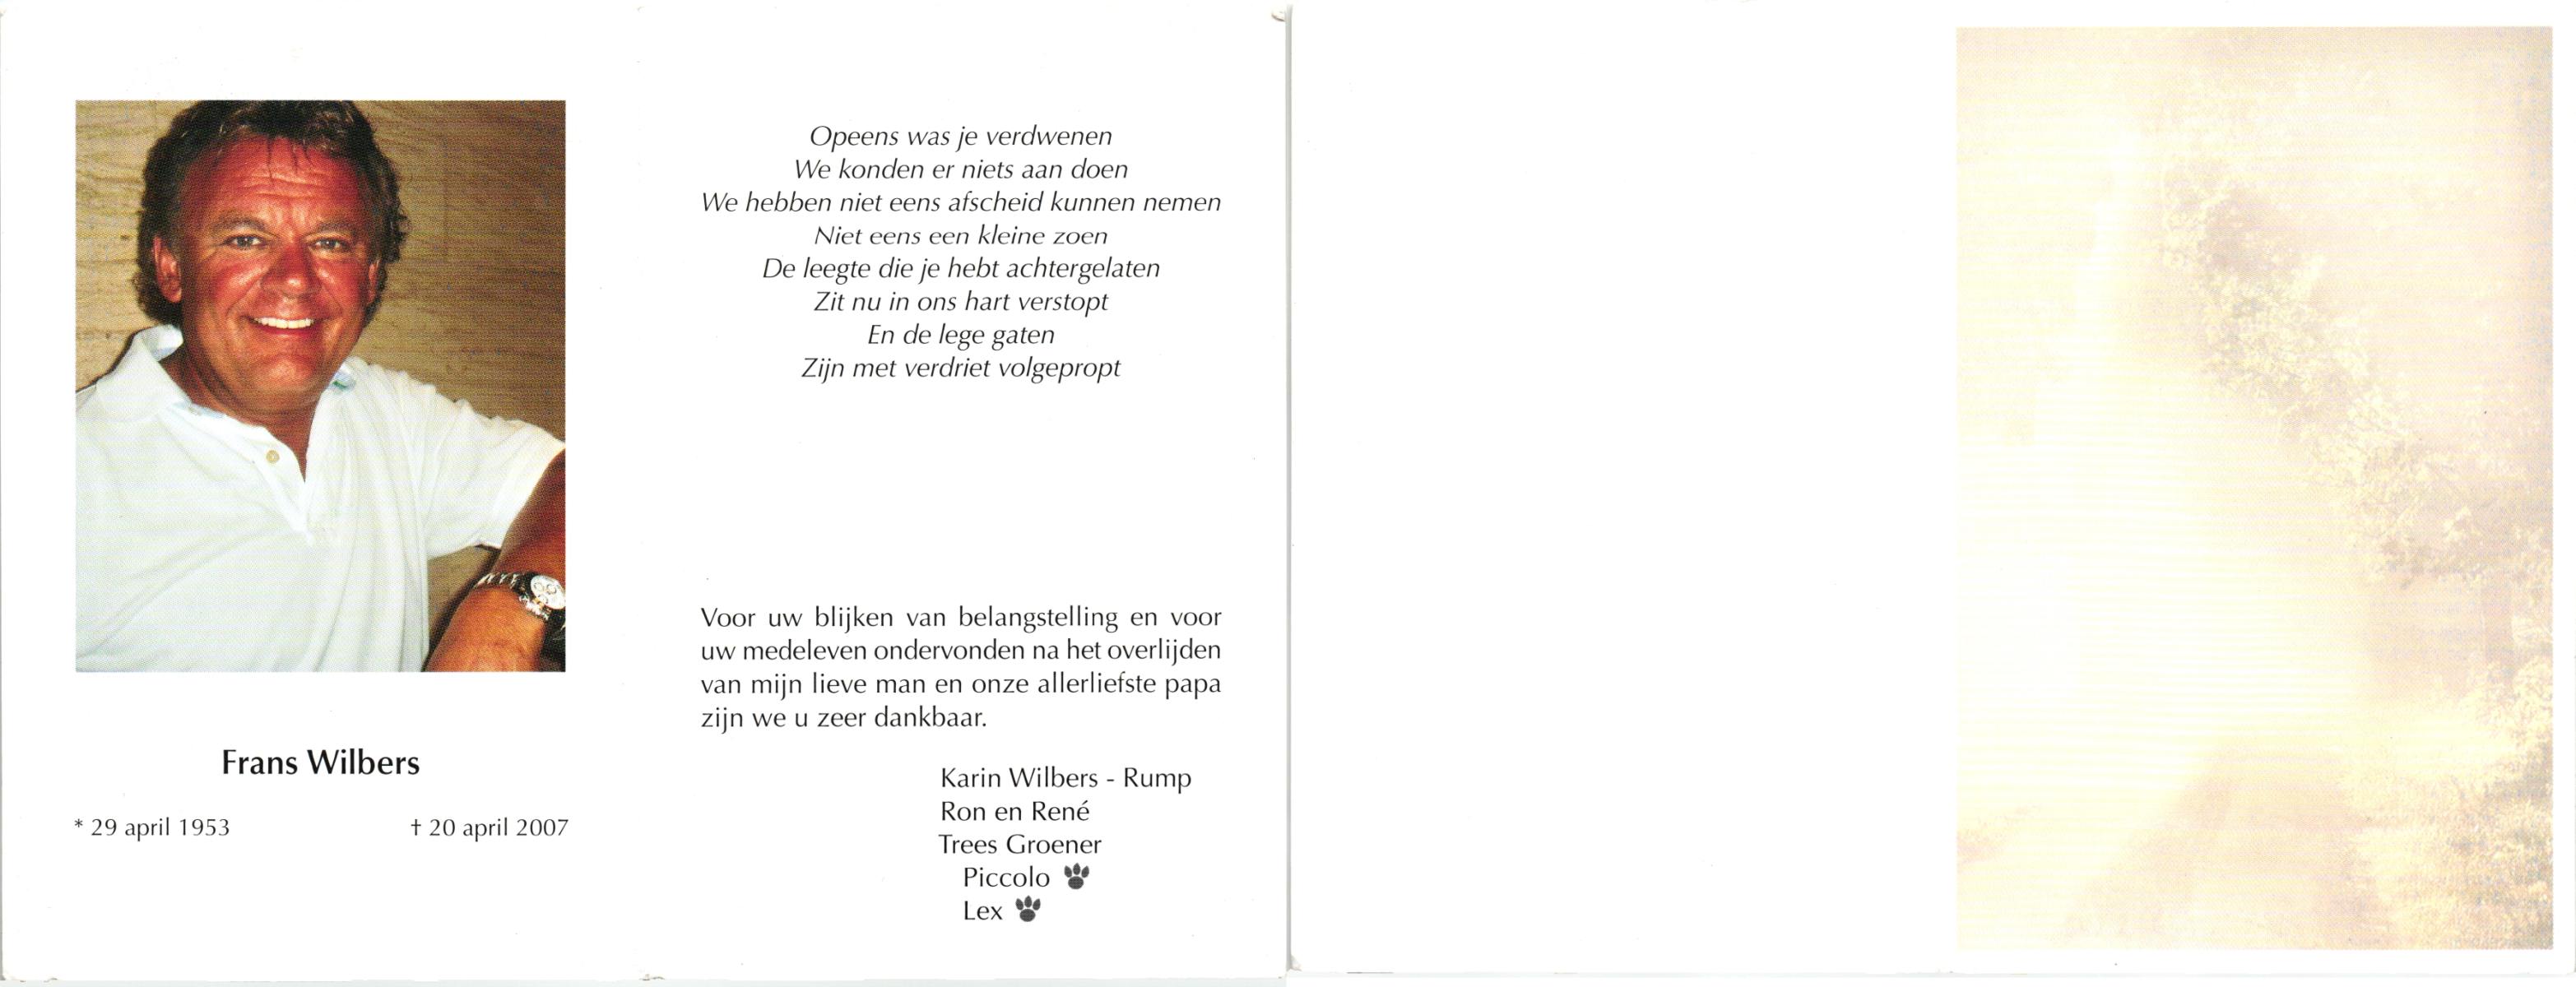 Frans Wilbers
* 29 april 1953 † 20 april 2007
Opeens was je verdwenen
We konden er niets aan doen
We hebben niet eens afscheid kunnen nemen
Niet eens een kleine zoen
De leegte die je hebt achtergelaten
Zit nu in ons hart verstopt
En de lege gaten
Zijn met verdriet volgepropt
Voor uw blijken van belangstelling en voor
uw medeleven ondervonden na het overlijden
van mijn lieve man en onze allerliefste papa
zijn we u zeer dankbaar.
Karin Wilbers - Rump
Ron en René
Trees Groener
Piccolo
Lex